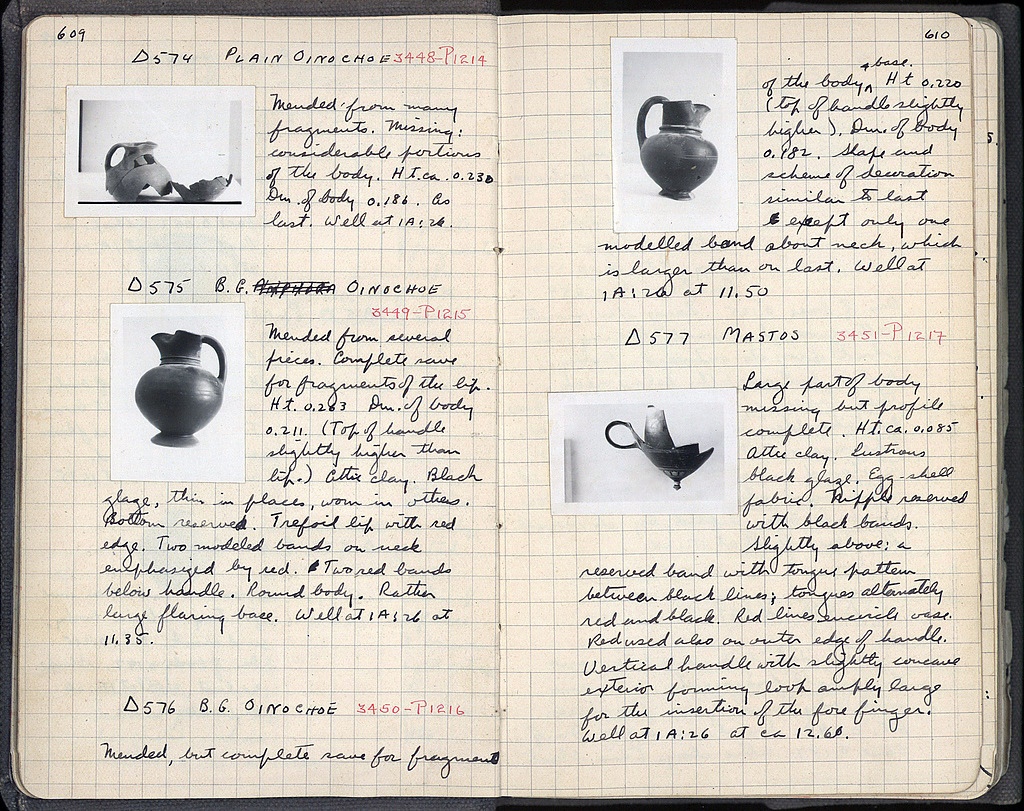 609
Δ574 PLAIN OINOCHOE 3448-P1214
Mended from many
fragments. Missing:
considerable portions
of the body. Ht. ca. 0.230
Dm. of body 0.186. As
last. Well at 1A:26.
Δ575 B.G. OINOCHOE
3449-P1215
Mended from several
pieces. Complete save
for fragments of the lip.
Ht. 0.263 Dm. of body
0.211. (Top of handle
slightly higher than
lip.) Attic clay. Black
glaze, thin in places, worn in others.
Bottom reserved. Trefoil lip with red
edge. Two modeled bands on neck
emphasized by red. Two red bands
below handle. Round body. Rather
large flaring base. Well at 1A:26 at
11.35.
Δ576 B.G. OINOCHOE 3450-P1216
Mended, but complete save for fragment
610
& base.
of the body ^ Ht 0.220
(top of handle slightly
higher). Dm. of body
0.182. Shape and
scheme of decoration
similar to last
except only one
modelled band about neck, which
is larger than on last. Well at
1A:26 at 11.50
Δ577 MASTOS 3451-P1217
Large part of body
missing but profile
complete. Ht. ca. 0.085
Attic clay. Lustrous
black glaze. Egg-shell
fabric. Nipple reserved
with black bands.
Slightly above: a
reserved band with tongue pattern
between black lines; tongues alternately
red and black. Red lines encircle vase.
Red used also on outer edge of handle.
Vertical handle with slightly concave
exterior forming loop amply large
for the insertion of the fore finger.
Well at 1A:26 at ca 12.60.